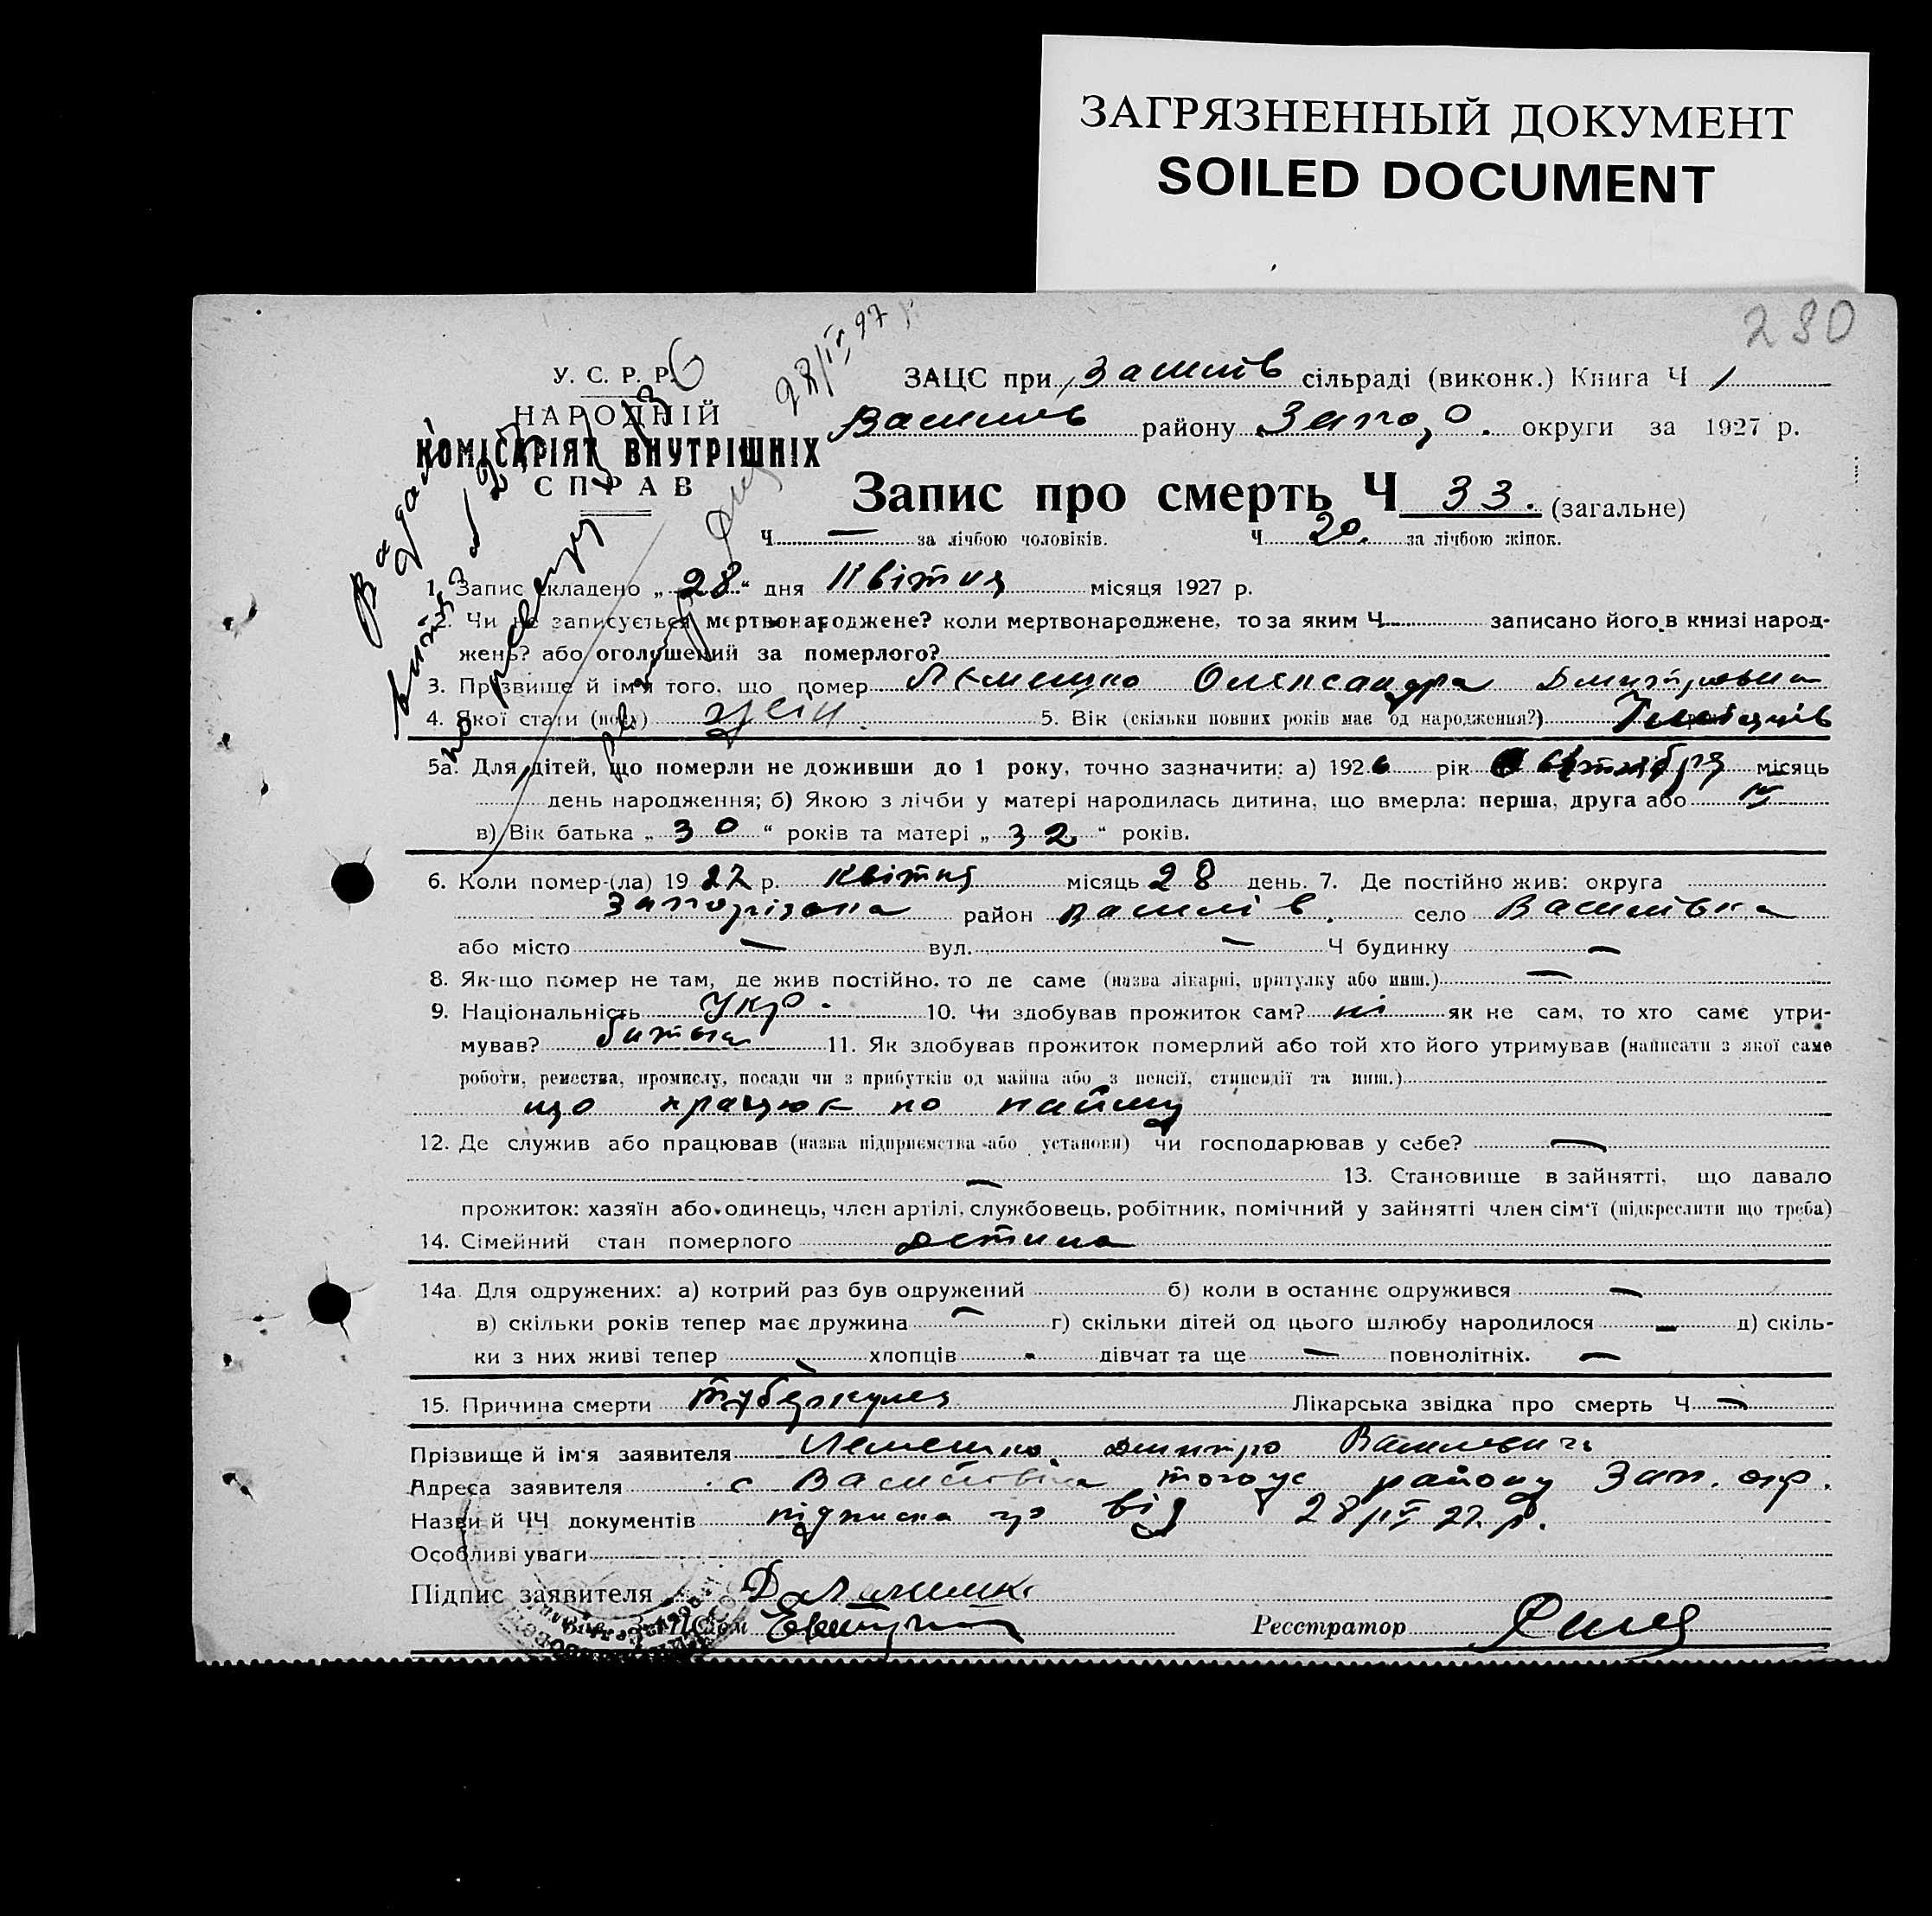 ЗАГРЯЗНЕННЫЙ ДОКУМЕНТ
SOILED DOCUMENT
280
28/IV 27
У. С. Р. Р.
НАРОДНІЙ
КОМІСАРІЯТ ВНУТРІШНІХ
СПРАВ
ЗАЦС при сільраді (виконк.) Книга Ч 1
Василів району Запо округи за 1927 р.
Запис про смерть Ч 33. (загальне)
Ч — за лічбою чоловіків. Ч 20. за лічбою жінок.
1. Запис складено „ 28 “ дня Квітня місяця 1927 р.
2. Чи не записується мертвонароджене? коли мертвонароджене, то за яким Ч записано його в книзі народ-
жень? або оголошений за померлого?
3. Прізвище й ім'я того, що помер Лемешко Олександра Дмитровна
4. Якої стати (полу) жін. 5. Вік (скільки повних років має од народження?)
5а. Для дітей, що померли не доживши до 1 року, точно зазначити: а) 1926 рік місяць
день народження; б) Якою з лічби у матері народилась дитина, що вмерла: перша, друга або IV
в) Вік батька „ 30 “ років та матері „ 32 “ років.
6. Коли помер-(ла) 1927 р. Квітня місяць 28 день. 7. Де постійно жив: округа
Запорізька район Василів. село Василівка
або місто — вул. — Ч будинку —
8. Як-що помер не там, де жив постійно, то де саме (назва лікарні, притулку або инш.) —
9. Національність Укр. 10. Чи здобував прожиток сам? ні як не сам, то хто саме утри-
мував? батька 11. Як здобував прожиток померлий або той хто його утримував (написати з якої саме
роботи, ремества, промислу, посади чи з прибутків од майна або з пенсії, стипендії та инш.)
що працює по найму
12. Де служив або працював (назва підприємства або установи) чи господарював у себе? —
— 13. Становище в зайнятті, що давало
прожиток: хазяїн або одинець, член артілі, службовець, робітник, помічний у зайнятті член сім'ї (підкреслити що треба)
14. Сімейний стан померлого дєтина
14а. Для одружених: а) котрий раз був одружений б) коли в останнє одружився —
в) скільки років тепер має дружина — г) скільки дітей од цього шлюбу народилося — д) скіль-
ки з них живі тепер хлопців - дівчат та ще — повнолітніх. —
15. Причина смерти туберкулез Лікарська звідка про смерть Ч —
Прізвище й ім'я заявителя Лемешко Дмитро Василевич
Адреса заявителя с Василівка того ж району Зап. окр.
Назви й ЧЧ документів підписка від 28/IV 27. р.
Особливі уваги
Підпис заявителя
Зав. ЗАЦСом Реєстратор